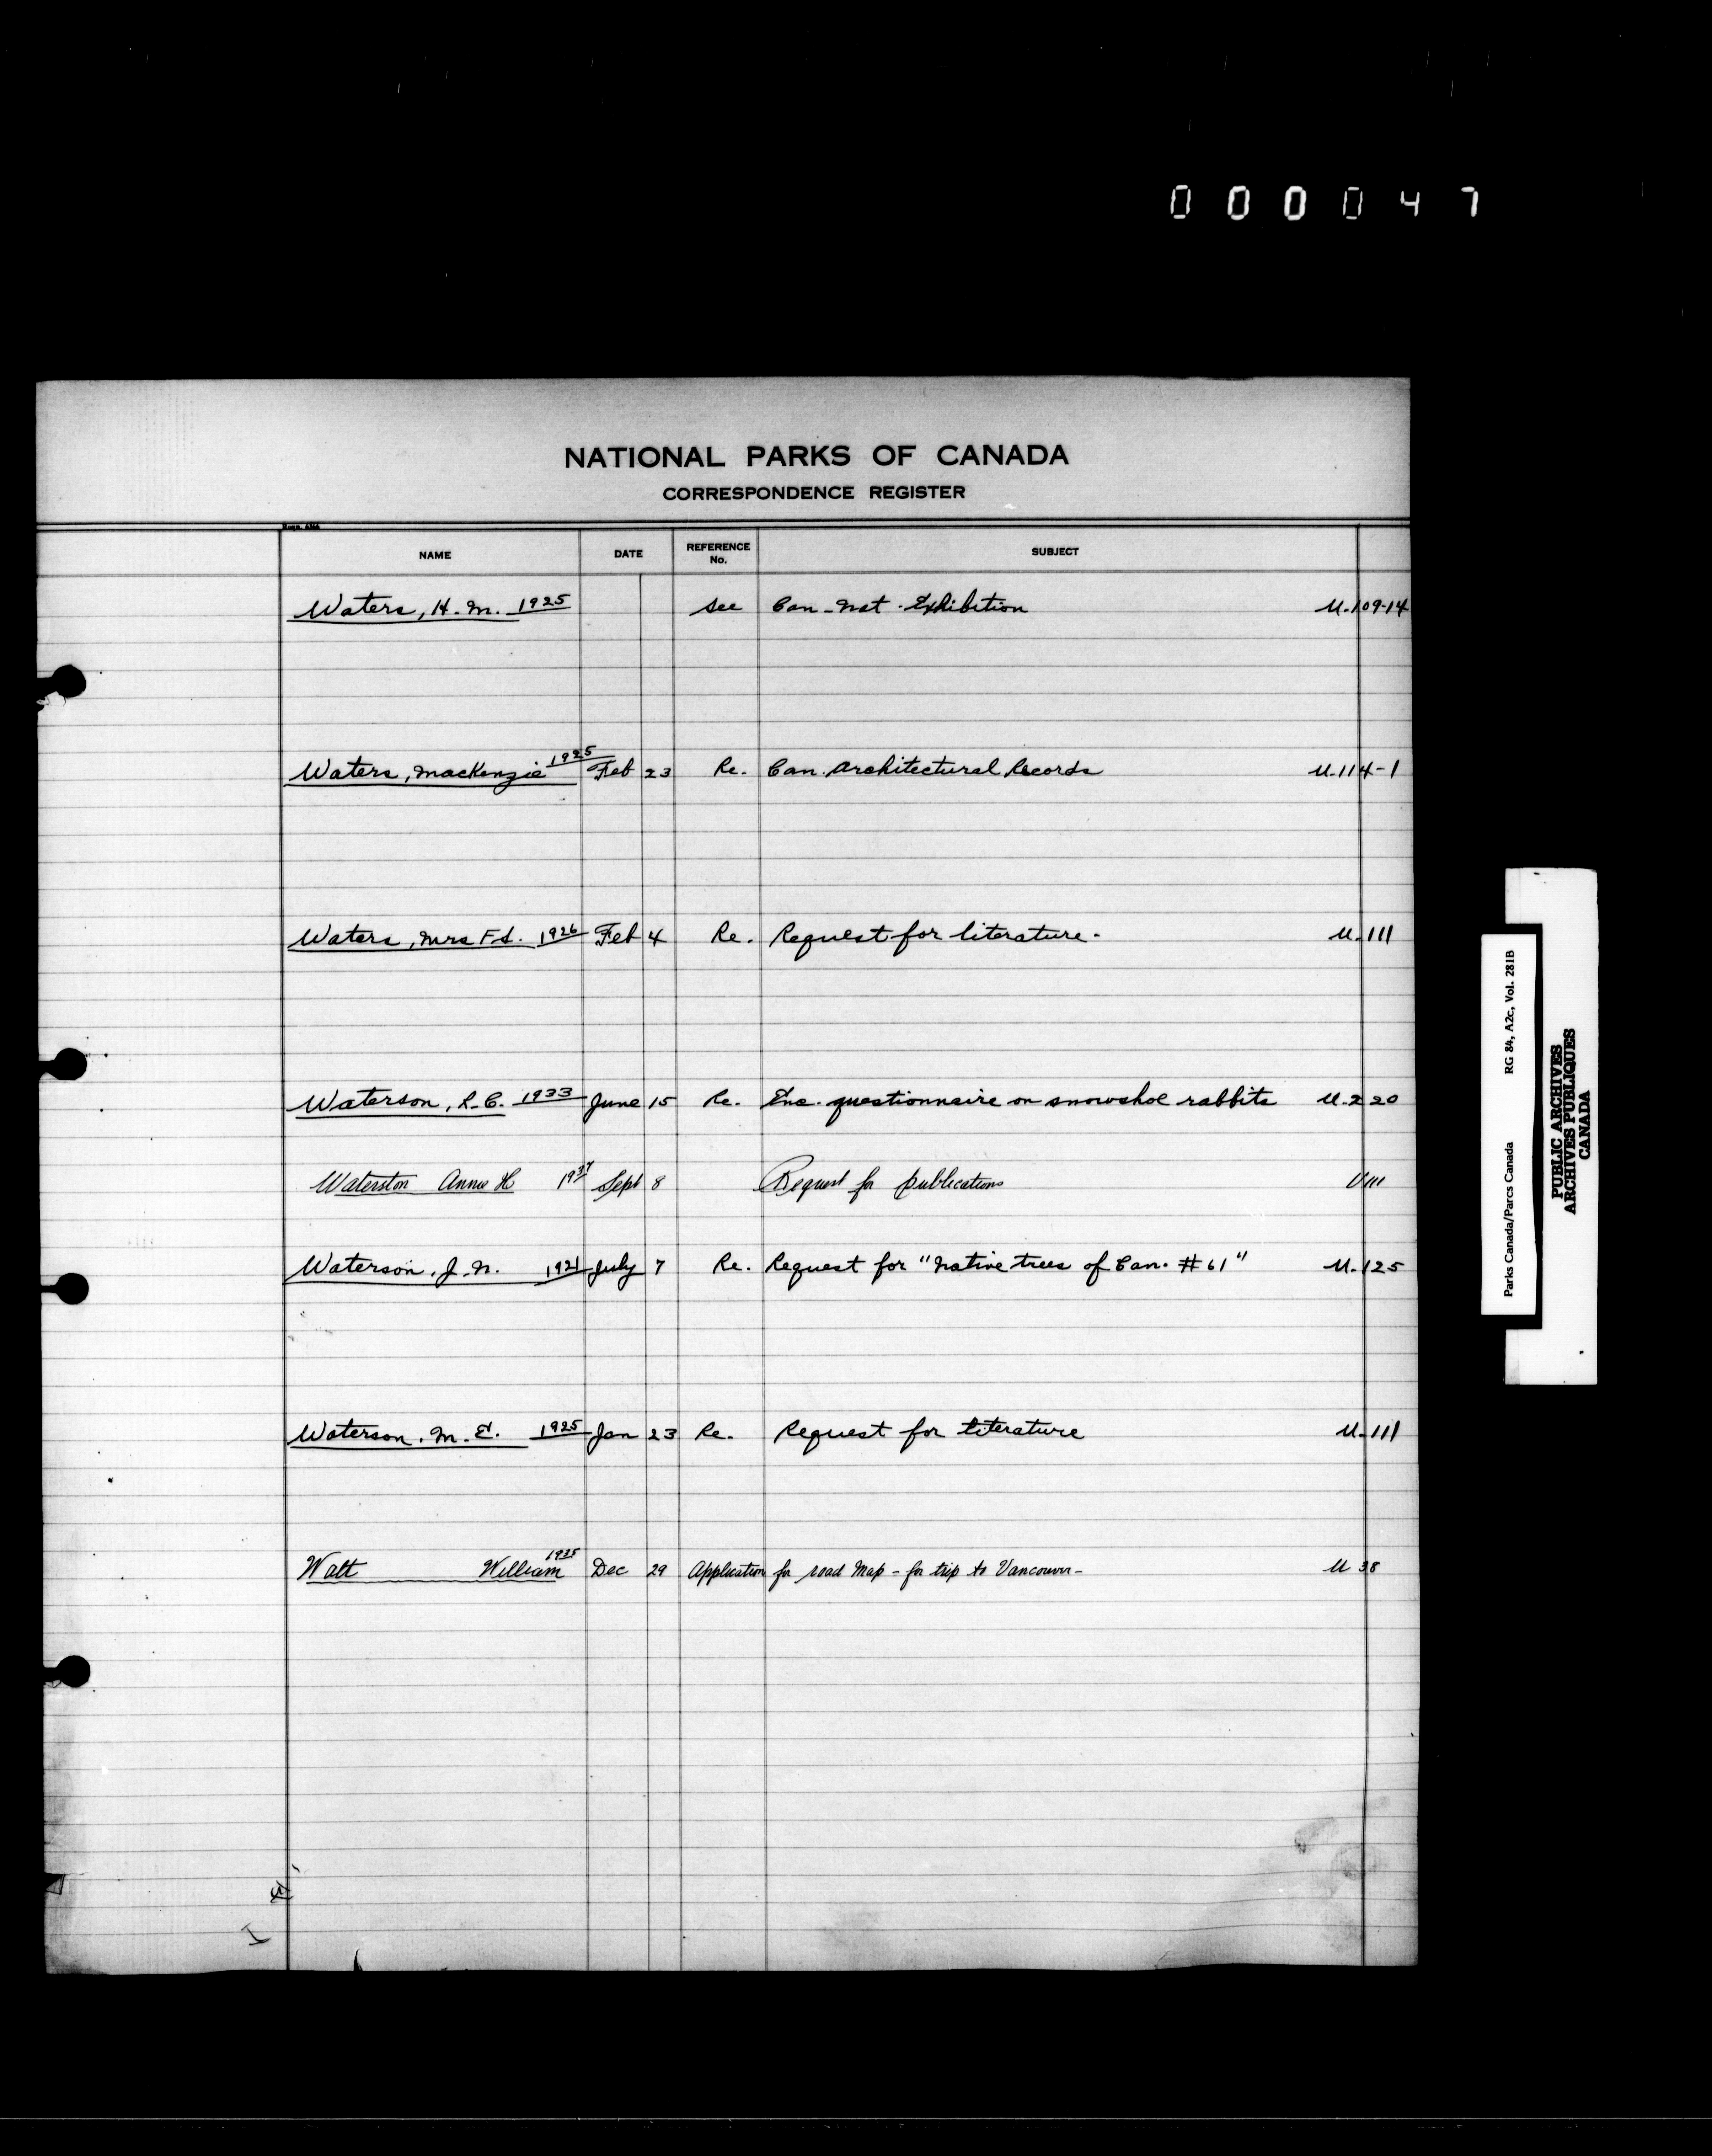 000047
NATIONAL PARKS OF CANADA
CORRESPONDENCE REGISTER
NAME DATE REFERENCE No. SUBJECT
Waters, H. M. 1925 see Can. Nat. Exhibition U-109-14
Waters, Mackenzie 1925 Feb 23 Re. Can. Architectural Records U-114-1
Waters, Mrs F.S. 1926 Feb 4 Re. Request for literature. U-111
Waterson, R. C. 1933 June 15 Re. Enc. questionnaire on snowshoe rabbits U-220
Waterston Annie H 1937 Sept 8 Request for publications U111
Waterson, J. N. 1921 July 7 Re. Request for "Native trees of Can. #61" U-125
Waterson, M. E. 1925 Jan 23 Re. Request for literature U-111
Watt William 1935 Dec 29 Application for road Map - for trip to Vancouver - U 38
Parks Canada/Parcs Canada RG 84, A2c, Vol. 281B
PUBLIC ARCHIVES
ARCHIVES PUBLIQUES
CANADA